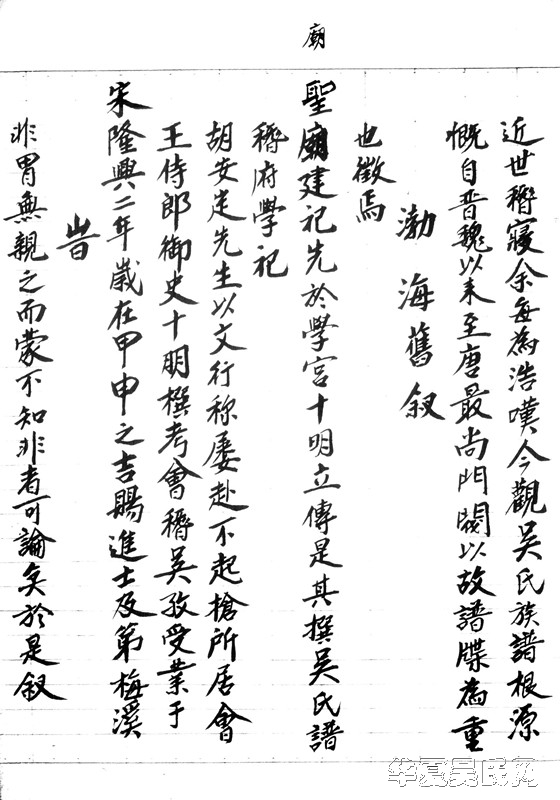 廟
近世稽寢余每為浩嘆今觀吳氏族譜根源
慨自晋魏以来至唐最尚門閥以故譜牒為重
渤海舊叙
也徵焉
聖廟建記先於學宮十明立傳是其撰吳氏譜
稽府學記
胡安定先生以文行称屡赴不起搶所居會
王侍郎御史十朋撰考會稽吳孜受業于
宋隆興二年歲在甲申之吉賜進士及第梅溪
旹
非冒無親之而蒙不知非者可論矣於是叙
华夏吴氏网